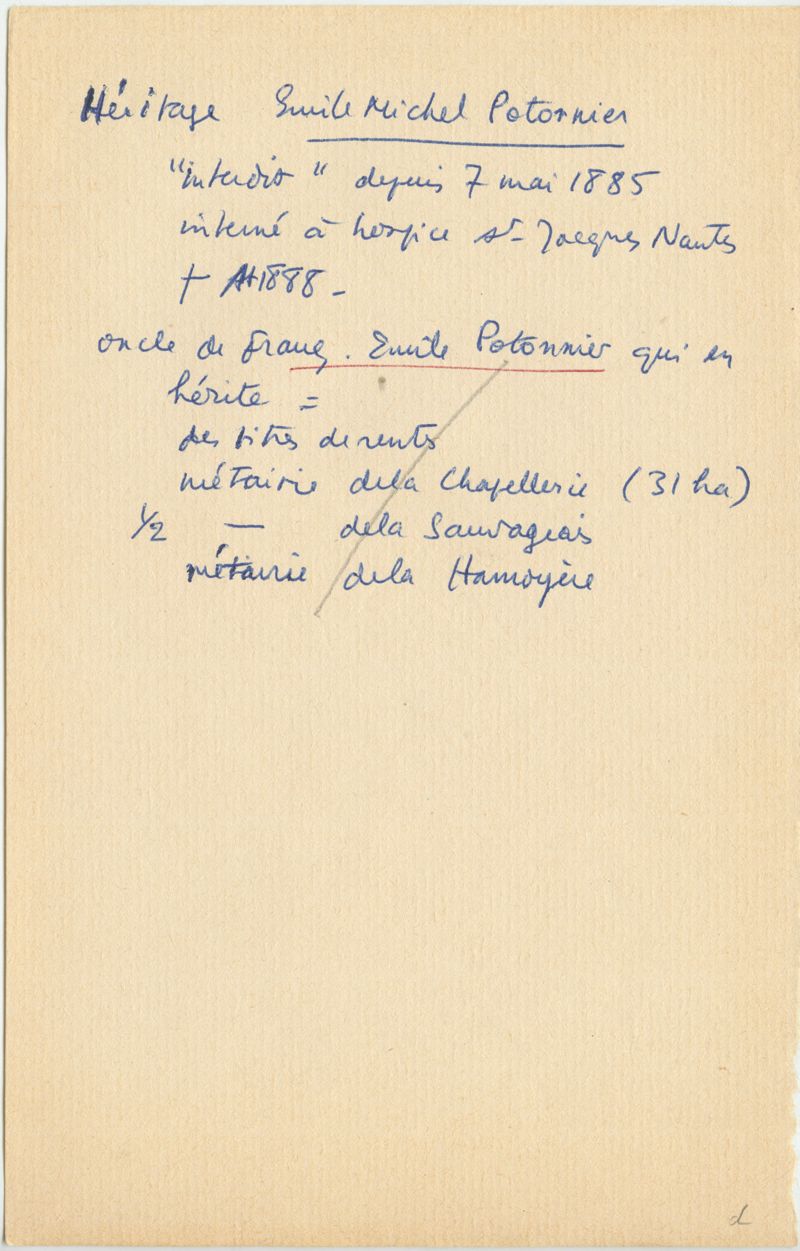 Héritage Emile Michel Potonnier
"interdit" depuis 7 mai 1885
interné à hospice St-Jacques Nantes
† 1888 -
oncle de Franç. Emile Potonnier qui en
hérite =
des titres de rentes
métairie de la Chapellerie (31 ha)
1/2 — de la Sauvagerais
métairie de la Hamoyère
d